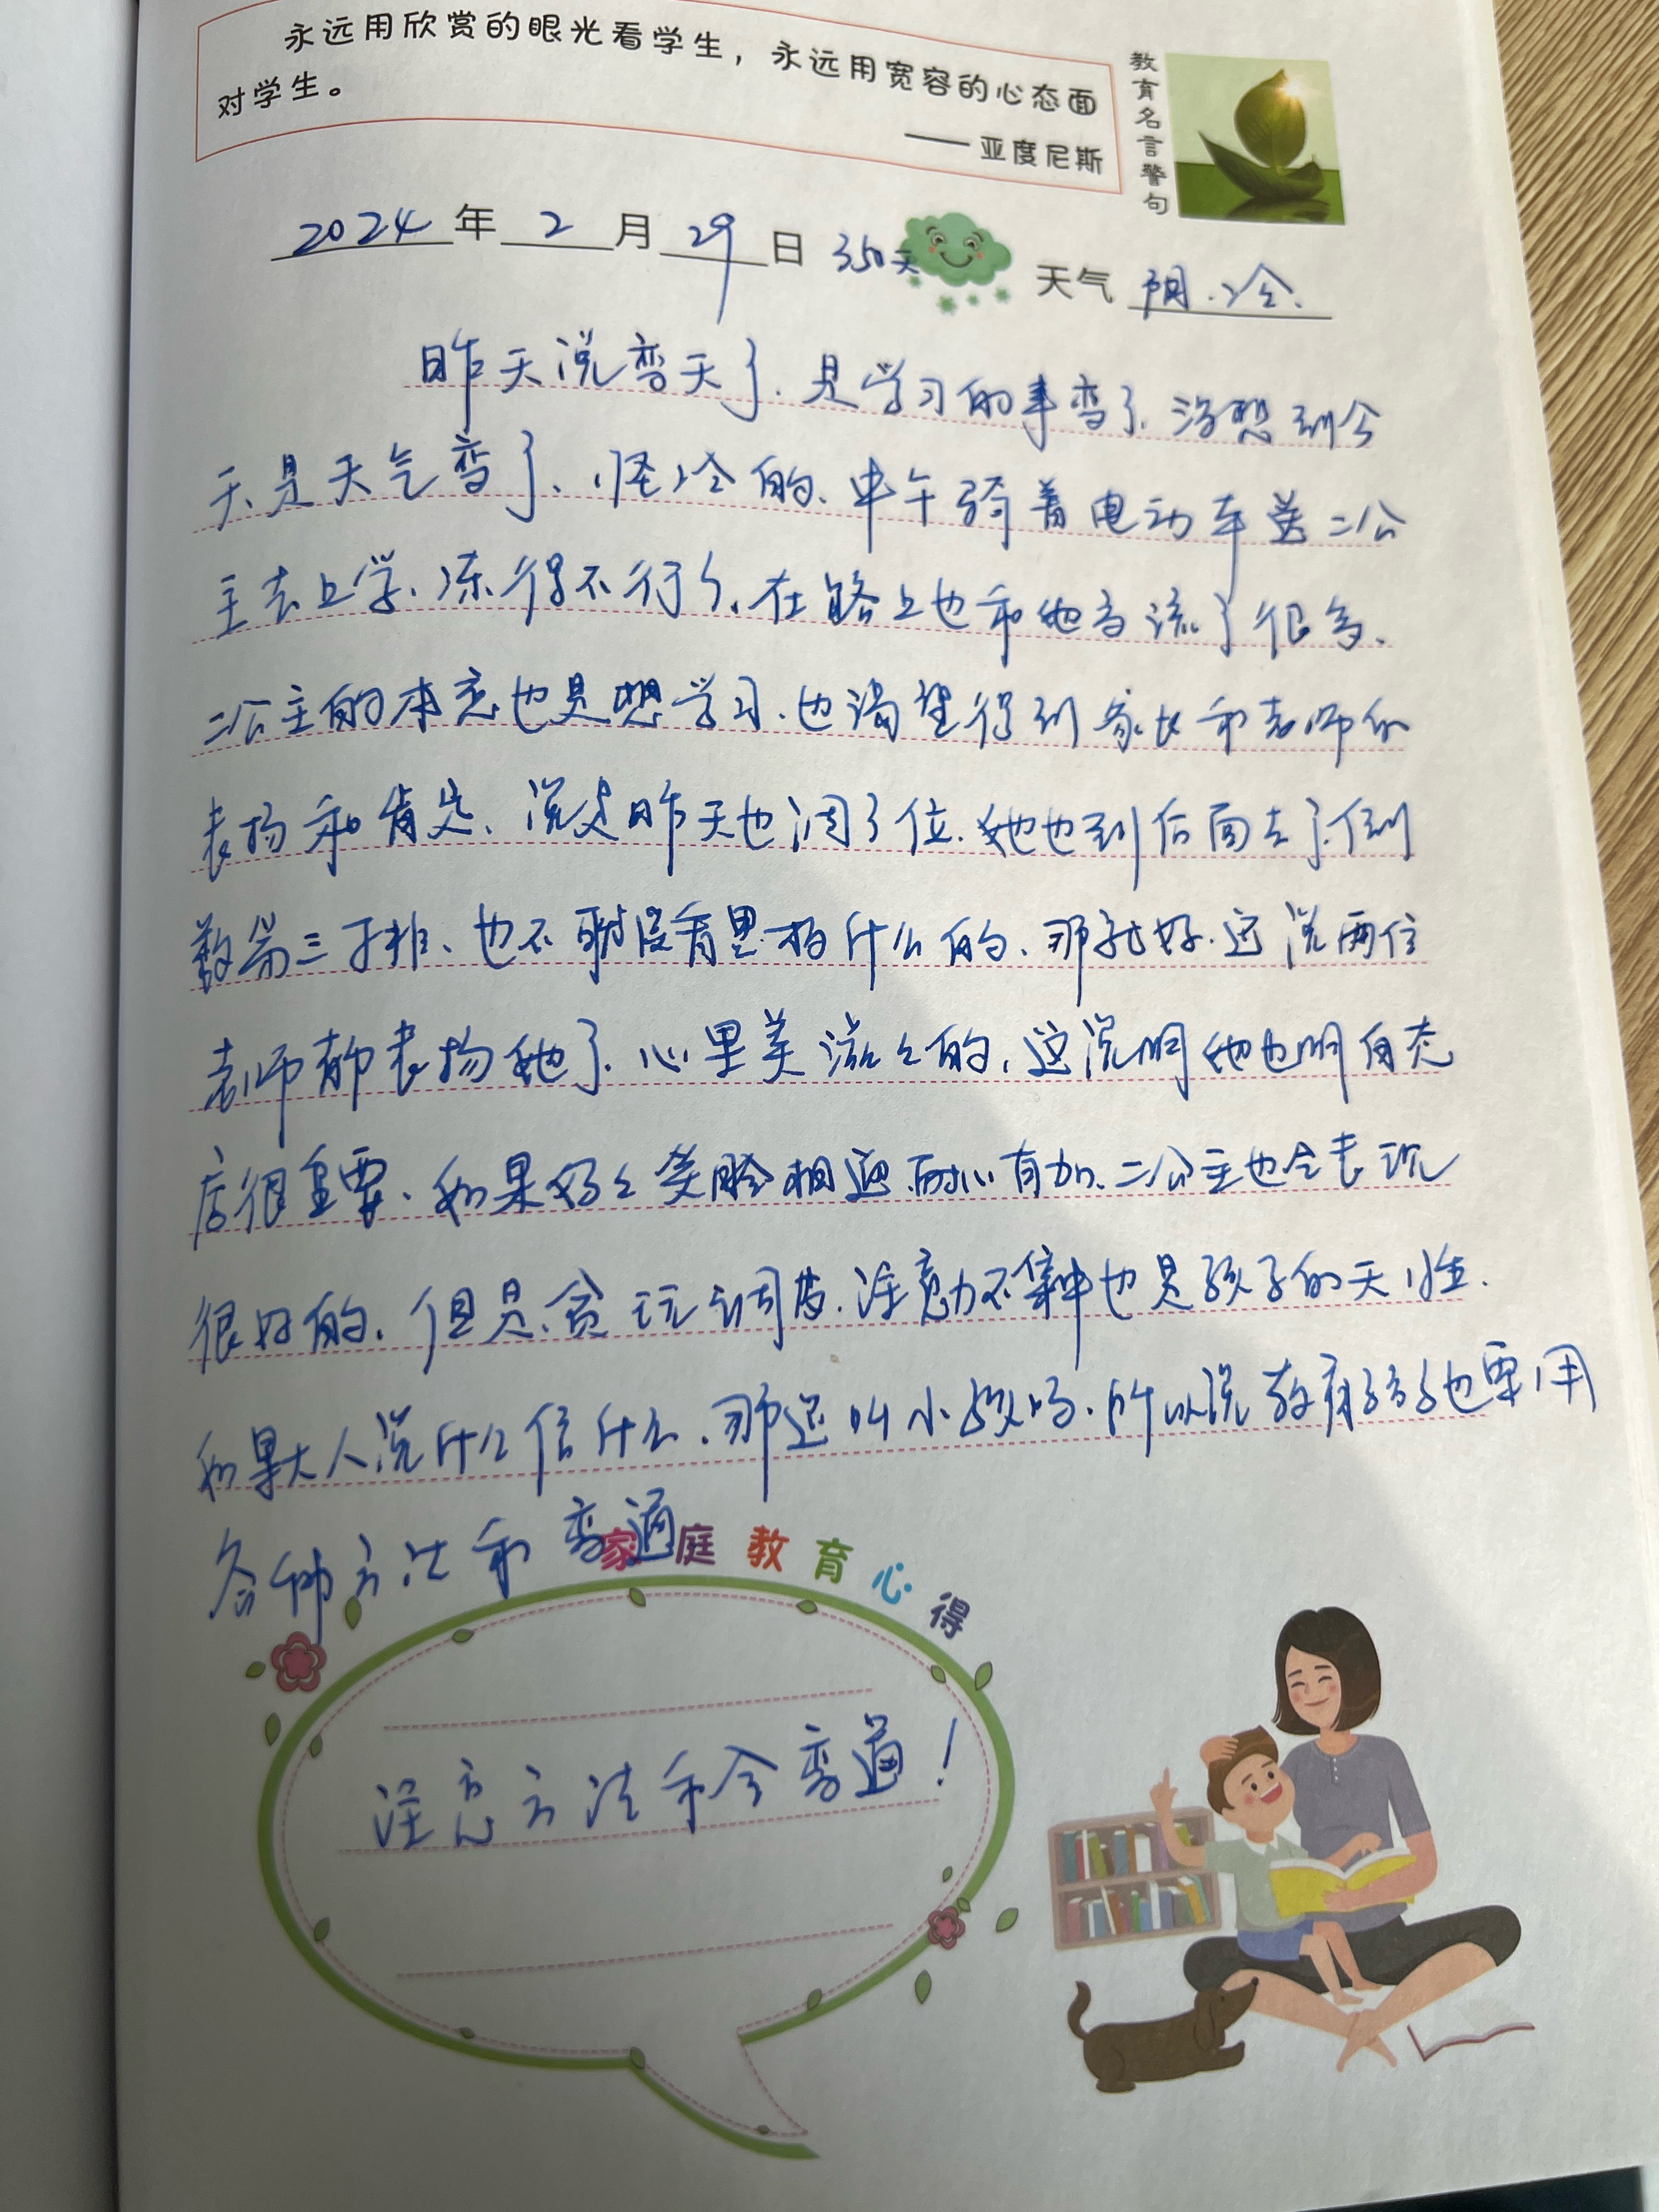 永远用欣赏的眼光看学生，永远用宽容的心态面
对学生。
——亚度尼斯
教育名言警句
2024年2月29日 350天 天气 阴.冷.
昨天说变天了.是学习的事变了.没想到今
天是天气变了、怪冷的、中午骑着电动车送二公
主去上学、冻得不行了、在路上也和她交流了很多、
二公主的本意也是想学习.也渴望得到家长和老师的
表扬和肯定、说是昨天也调了位.她也到后面去了.倒
数第三排、也不耽误看黑板什么的、那就好.还说两位
老师都表扬她了.心里美滋々的,这说明她也明白态
度很重要、如果好々笑脸相迎.耐心有加、二公主也会表现
很好的、但是、贪玩调皮.注意力不集中也是孩子的天性.
如果大人说什么信什么.那还叫小孩吗.所以说教育孩子也要用
各种方法和变通
家庭教育心得
注意方法和会变通！